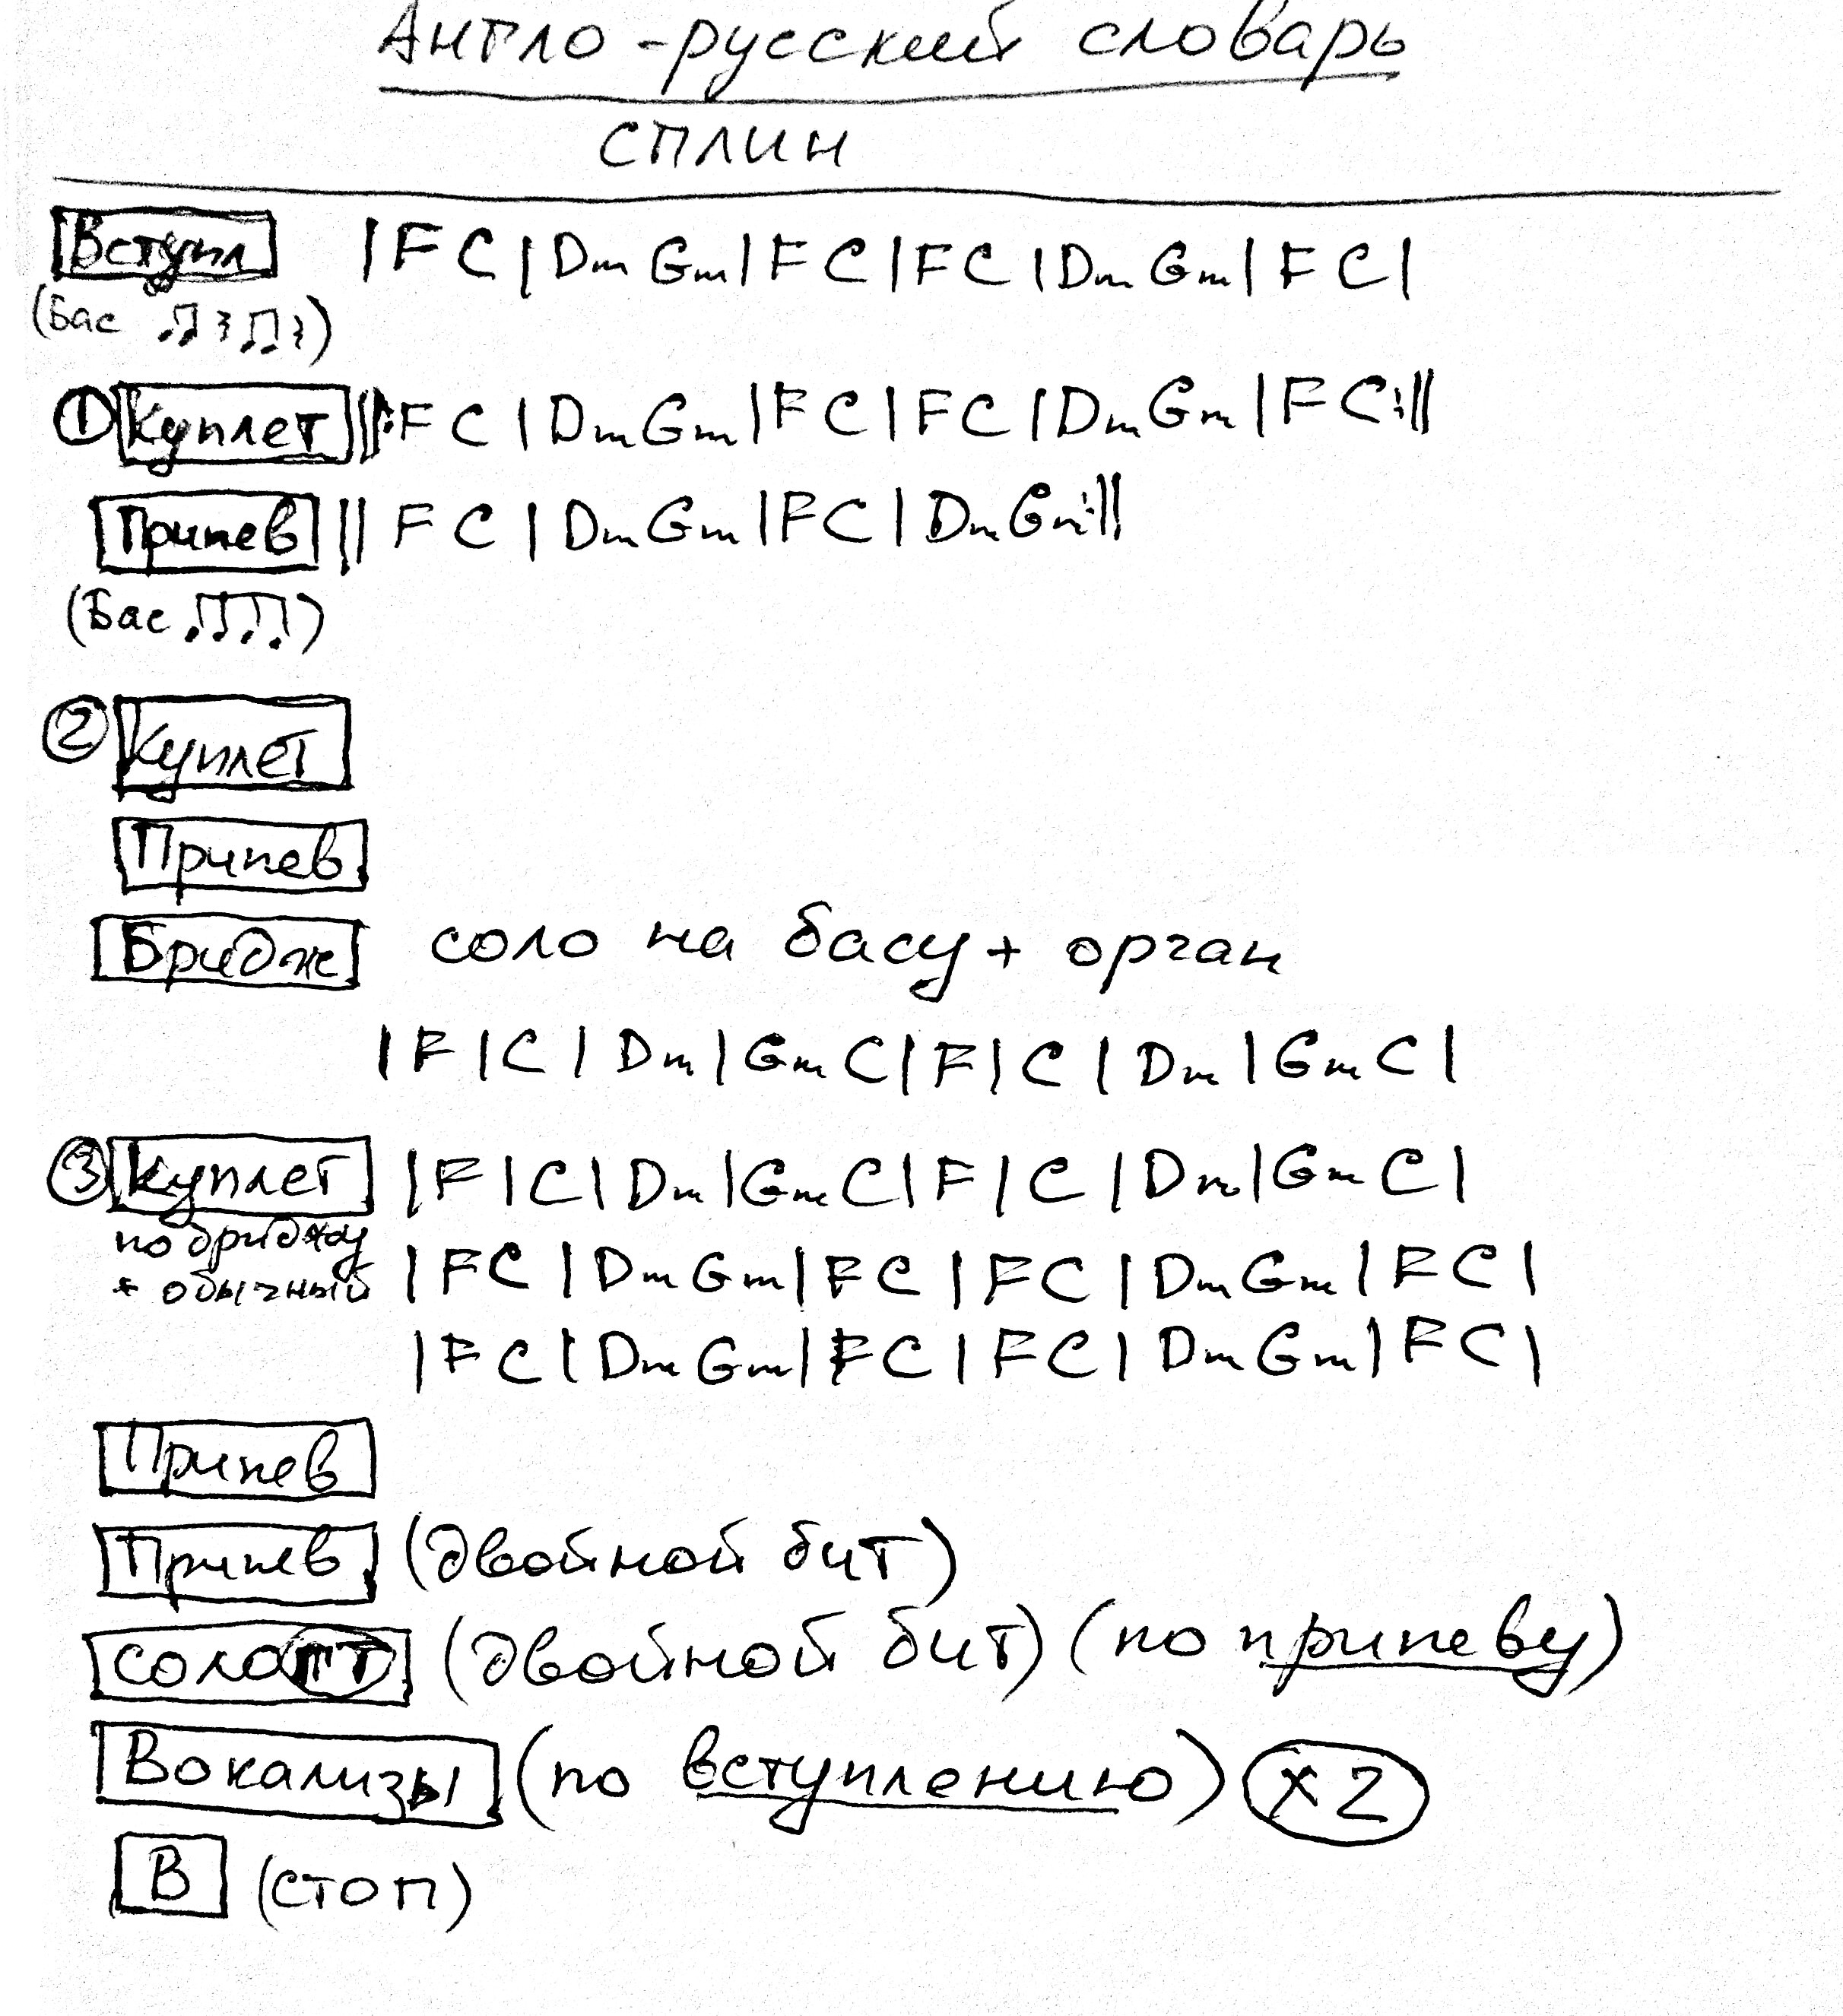 Англо-русский словарь
сплин
Вступл |F C|Dm Gm|F C|F C|Dm Gm|F C|
(Бас ♫𝄽♫𝄽)
① Куплет ||:F C|Dm Gm|F C|F C|Dm Gm|F C:||
Припев || F C|Dm Gm|F C|Dm Gm:||
(Бас ♫♫)
② Куплет
Припев
Бридж соло на басу + орган
|F|C|Dm|Gm C|F|C|Dm|Gm C|
③ Куплет |F|C|Dm|Gm C|F|C|Dm|Gm C|
по бриджу |F C|Dm Gm|F C|F C|Dm Gm|F C|
+ обычный
|F C|Dm Gm|F C|F C|Dm Gm|F C|
Припев
Припев (двойной бит)
соло (двойной бит) (по припеву)
Вокализы (по вступлению) x2
В (стоп)